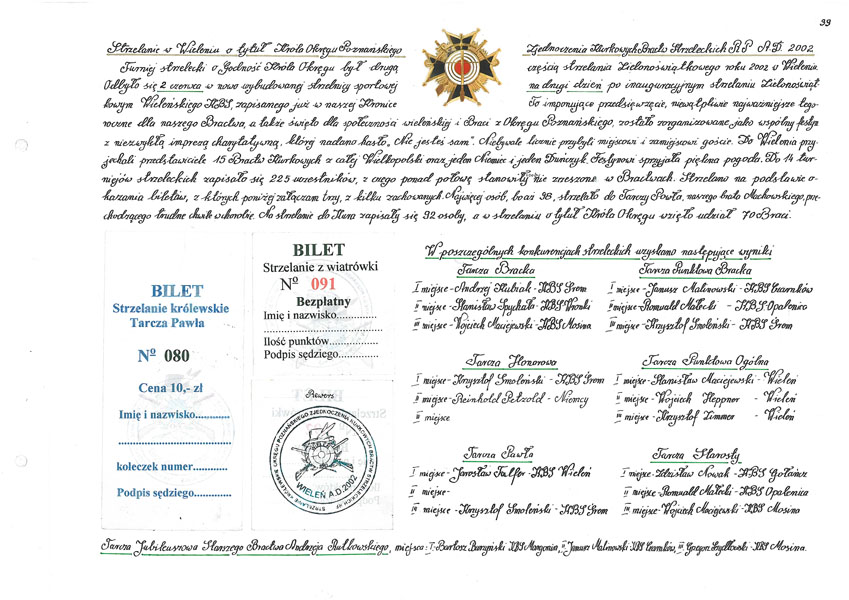 99
Strzelanie w Wieleniu o tytuł Króla Okręgu Poznańskiego
Zjednoczenia Kurkowych Bractw Strzeleckich R.P. A.D. 2002
Turniej strzelecki o Godność Króla Okręgu był drugą
częścią strzelania Zielonoświątkowego roku 2002 w Wieleniu.
Odbyło się 2 czerwca w nowo wybudowanej strzelnicy sportowej
na drugi dzień po inauguracyjnym strzelaniu Zielonoświąt-
kowym Wieleńskiego KBS, zapisanego już w naszej Kronice
To imponujące przedsięwzięcie, niewątpliwie najważniejsze tego-
roczne dla naszego Bractwa, a także święto dla społeczności wieleńskiej i Braci z Okręgu Poznańskiego, zostało zorganizowane, jako wspólny festyn
z niezwykłą imprezą charytatywną, której nadano hasło „Nie jesteś sam”. Niebywale licznie przybyli miejscowi i zamiejscowi goście. Do Wielenia przy-
jechali przedstawiciele 15 Bractw Kurkowych z całej Wielkopolski oraz jeden Niemiec i jeden Duńczyk. Festynowi sprzyjała piękna pogoda. Do 14 tur-
niejów strzeleckich zapisało się 225 uczestników, z czego ponad połowę stanowiły nie zrzeszone w Bractwach. Strzelano na podstawie o-
kazania biletów, z których poniżej załączam trzy, z kilku zachowanych. Najwięcej osób, bo aż 98, strzelało do Tarczy Pawła, naszego brata Machowskiego, prze-
chodzącego trudne chwile w chorobie. Na strzelanie do Kura zapisały się 92 osoby, a w strzelaniu o tytuł Króla Okręgu wzięło udział 70 Braci.
BILET
Strzelanie królewskie
Tarcza Pawła
Nº 080
Cena 10,- zł
Imię i nazwisko............
koleczek numer...........
Podpis sędziego............
BILET
Strzelanie z wiatrówki
Nº 091
Bezpłatny
Imię i nazwisko............
Ilość punktów..............
Podpis sędziego............
Rewers
WIELEŃ A.D. 2002
W poszczególnych konkurencjach strzeleckich uzyskano następujące wyniki
Tarcza Bracka
I miejsce - Andrzej Kubiak - KBS Śrem
II miejsce - Stanisław Spychała - KBS Wronki
III miejsce - Wojciech Maciejewski - KBS Mosina
Tarcza Punktowa Bracka
I miejsce - Janusz Malinowski - KBS Czarnków
II miejsce - Romuald Małecki - KBS Opalenica
III miejsce - Krzysztof Smoleński - KBS Śrem
Tarcza Honorowa
I miejsce - Krzysztof Smoleński - KBS Śrem
II miejsce - Reinhold Petzold - Niemcy
III miejsce
Tarcza Punktowa Ogólna
I miejsce - Stanisław Maciejewski - Wieleń
II miejsce - Wojciech Heppner - Wieleń
III miejsce - Krzysztof Zimmer - Wieleń
Tarcza Pawła
I miejsce - Jarosław Falfer - KBS Wieleń
II miejsce -
III miejsce - Krzysztof Smoleński - KBS Śrem
Tarcza Starosty
I miejsce - Zdzisław Nowak - KBS Gołańcz
II miejsce - Romuald Małecki - KBS Opalenica
III miejsce - Wojciech Maciejewski - KBS Mosina
Tarcza Jubileuszowa Starszego Bractwa Andrzeja Rutkowskiego, miejsca: I - Bartosz KBS Margonin, II Janusz Malinowski KBS Czarnków, III Grzegorz KBS Mosina.